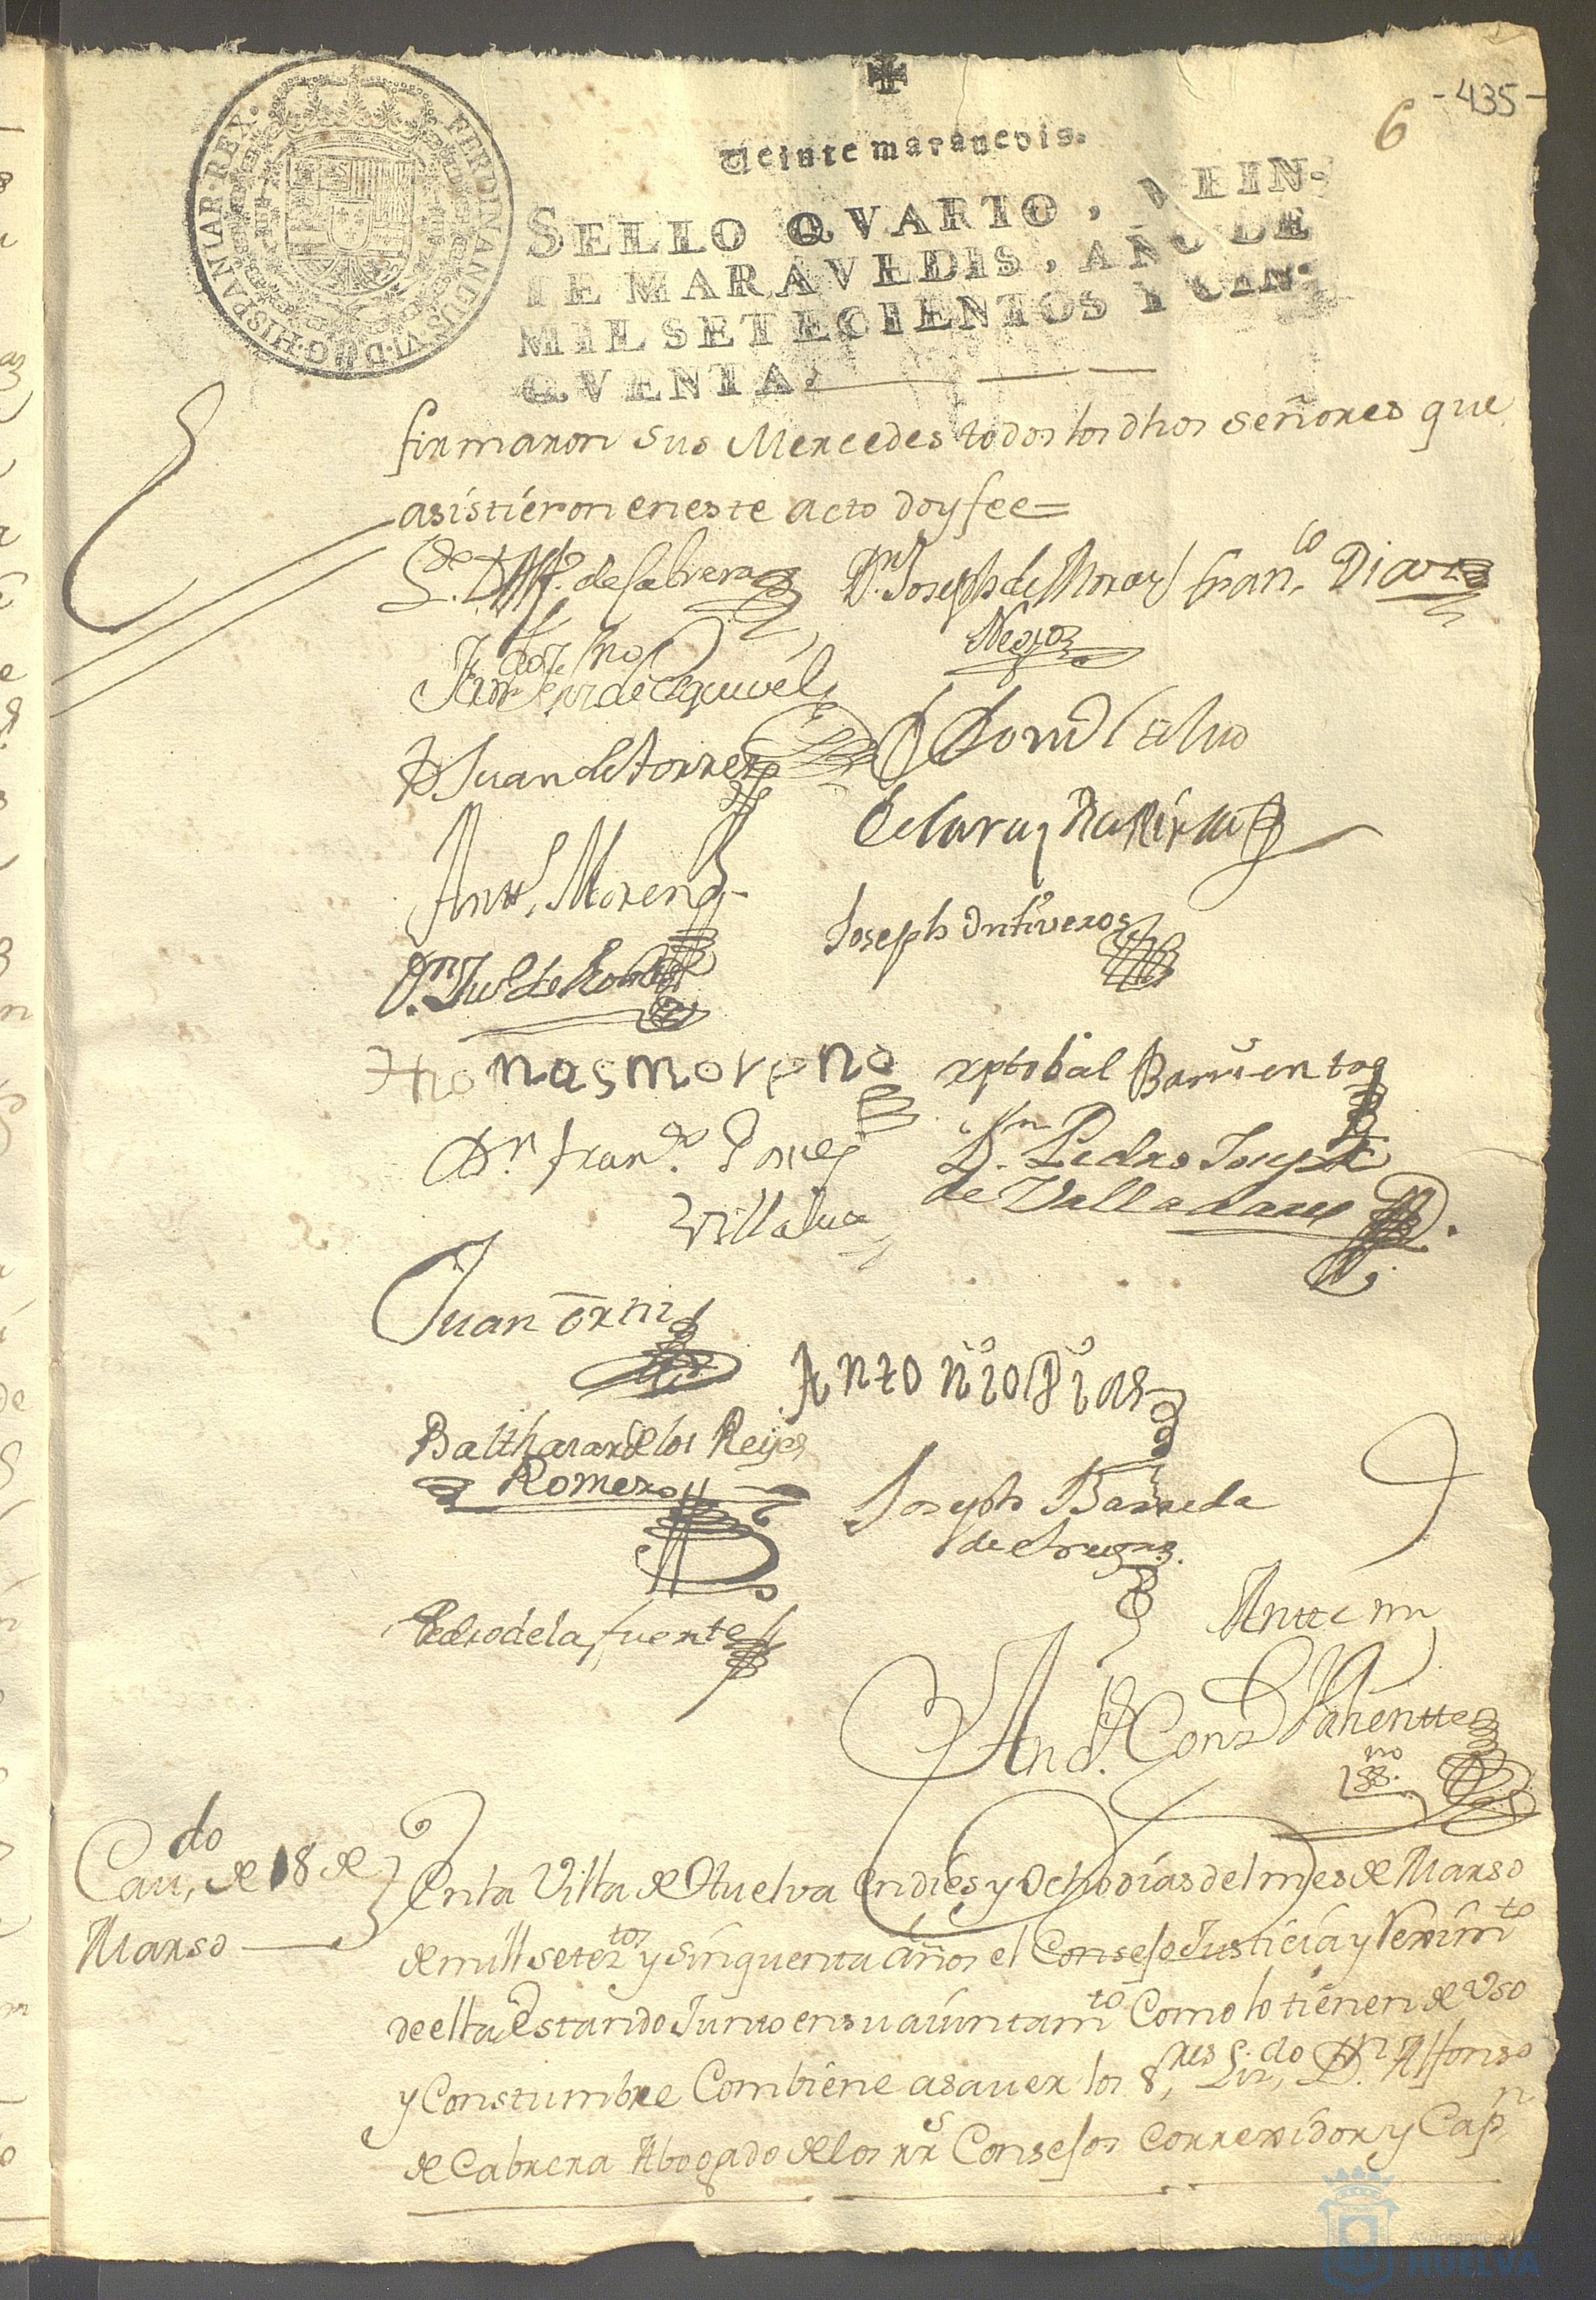 6 -435-
FERDINANDUS.VI.D.G.HISPANIAR.REX.
Veinte maravedis.
SELLO QVARTO, VEIN-
TE MARAVEDIS, AÑO DE
MIL SETECIENTOS Y CIN-
QVENTA.
firmaron sus Mercedes todos los dhos señores que
asistieron en este acto doy fee =
de Cabrera Dn. Joseph de Moraz Franco. Diaz
Negro
de Esquivel
D Juan de Torres
Antto. Moreno
Joseph Ontiveros
Dn.
thomas moreno xptobal Barrientos
Dn. Franco. Ponce
Villalva
Dn. Pedro Joseph
de Valladares
Juan Ortiz
Antonio Dias
Balthasar de los Reyes
Romero
Joseph Barreda
Pedro de la fuente
Antte mi
And. Gonz
Cavdo. de 18 de
Marso
En la Villa de Huelva en dies y Ocho dias del mes de Marso
de mill setezos y sinquenta años el Consejo Justicia y Reximto
de ella Estando Junto en su aiuntamto Como lo tienen de Uso
y Constumbre Combiene asaver los Sres Lizdo Dn Alfonso
de Cabrera Abogado de los RRs Consejos Correxidor y Capn
Ayuntamiento de
HUELVA